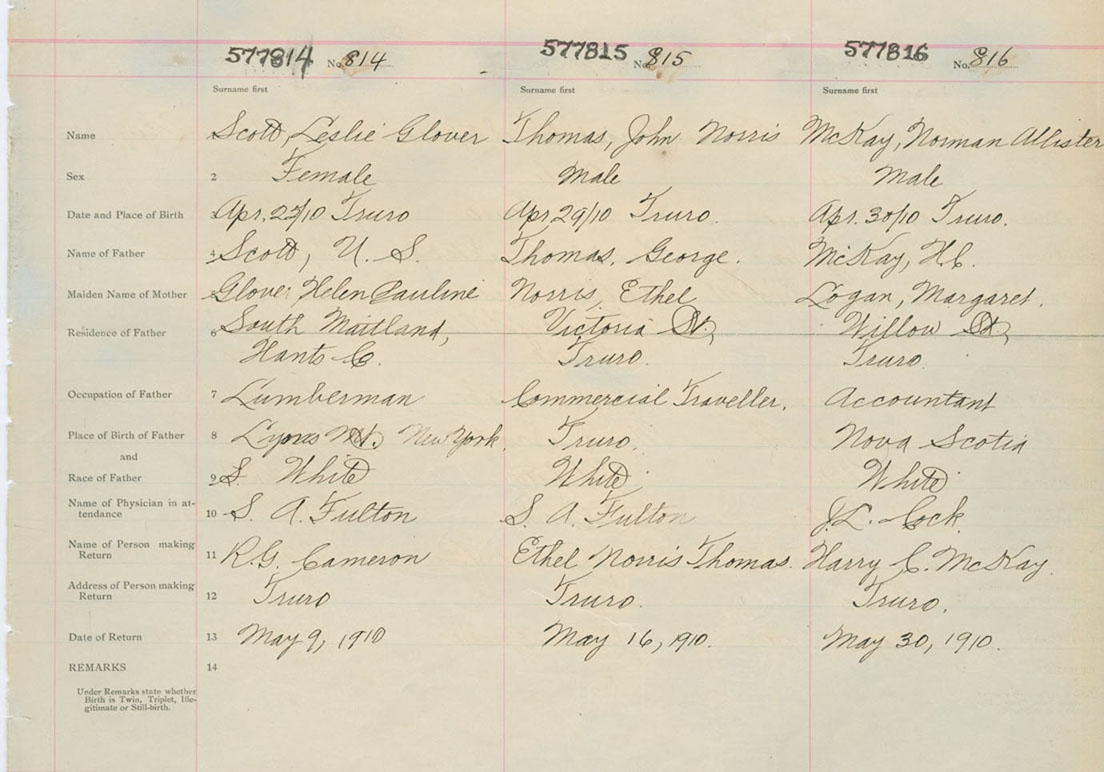 577814 No. 814 577815 No. 815 577816 No. 816
Surname first Surname first Surname first
Name Scott, Leslie Glover Thomas, John Norris McKay, Norman Allister
Sex 2 Female Male Male
Date and Place of Birth Apr. 27/10 Truro Apr. 29/10 Truro. Apr. 30/10 Truro.
Name of Father 4 Scott, U. S. Thomas, George. McKay, H.C.
Maiden Name of Mother Glover Helen Pauline Norris, Ethel Logan, Margaret.
Residence of Father 6 South Maitland, Victoria St. Willow St.,
Hants C. Truro. Truro.
Occupation of Father 7 Lumberman Commercial Traveller. Accountant
Place of Birth of Father 8 Lyons New York Truro. Nova Scotia
and
Race of Father 9 White White White
Name of Physician in at-
tendance 10 S. A. Fulton S. A. Fulton J.L. Cock
Name of Person making
Return 11 R.G. Cameron Ethel Norris Thomas. Harry C. McKay.
Address of Person making
Return 12 Truro Truro. Truro.
Date of Return 13 May 9, 1910 May 16, 1910. May 30, 1910.
REMARKS 14
Under Remarks state whether
Birth is Twin, Triplet, Ille-
gitimate or Still-birth.